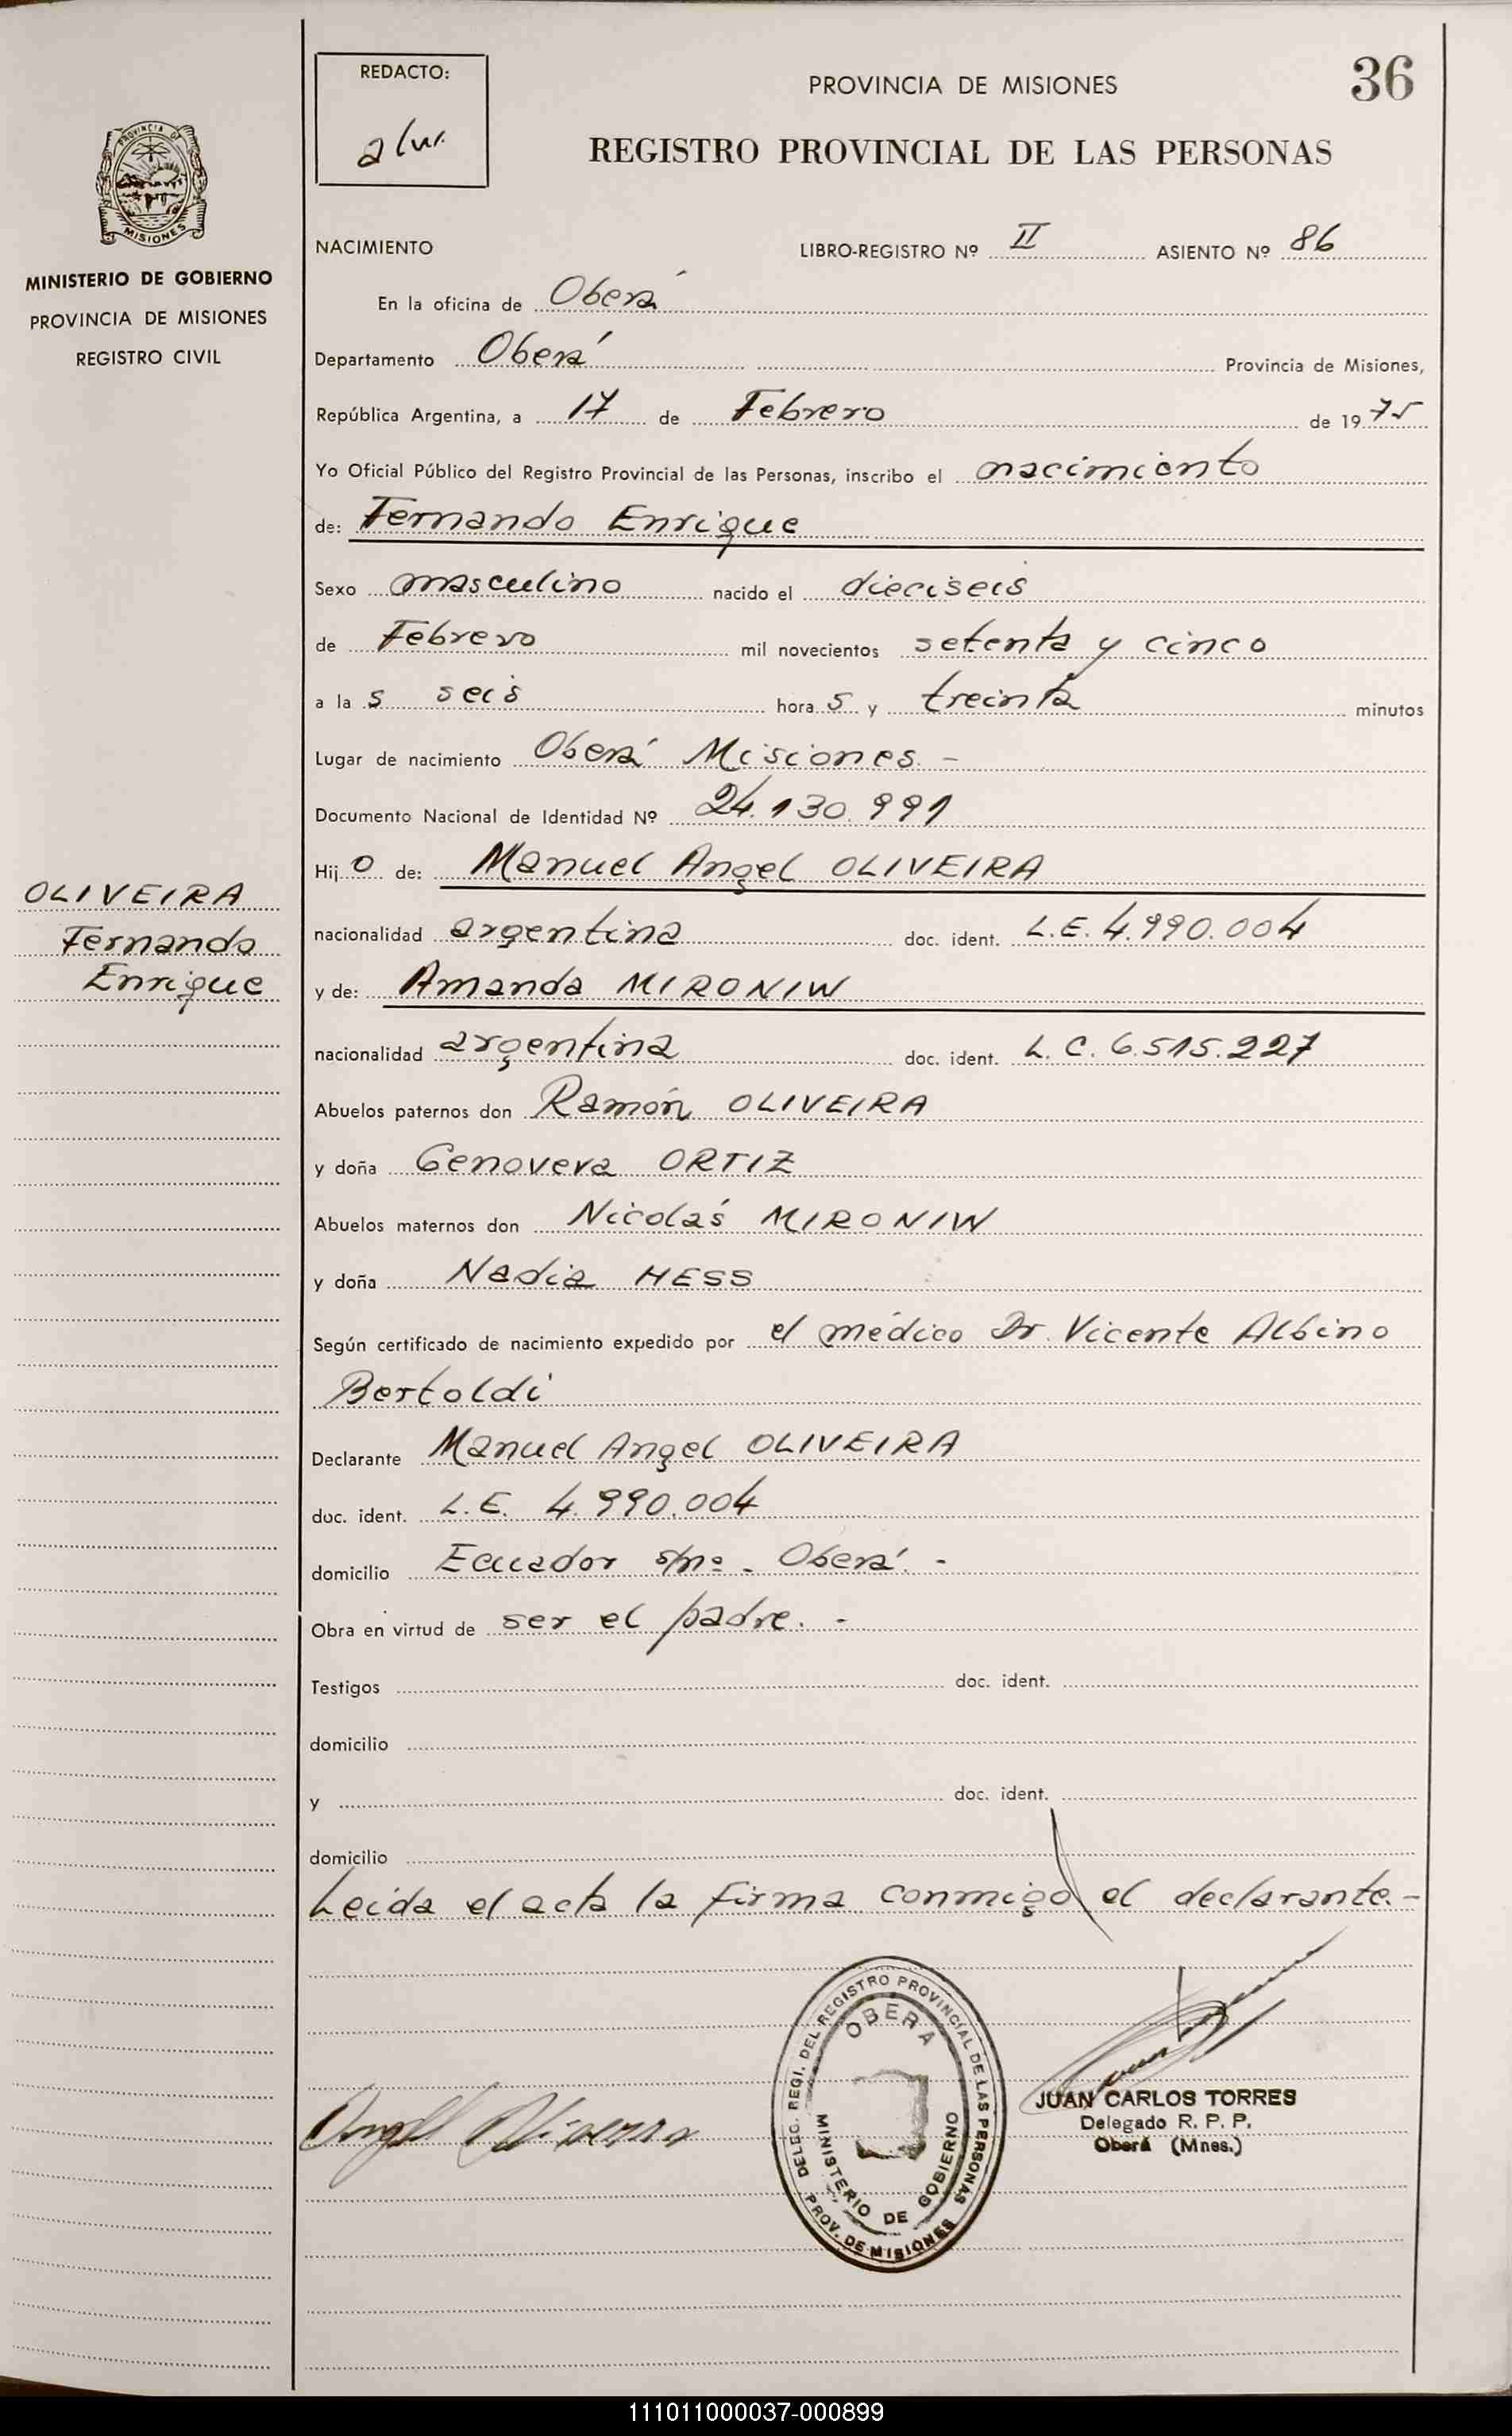 REDACTO:
PROVINCIA DE MISIONES
36
REGISTRO PROVINCIAL DE LAS PERSONAS
PROVINCIA DE
MISIONES
MINISTERIO DE GOBIERNO
PROVINCIA DE MISIONES
REGISTRO CIVIL
NACIMIENTO LIBRO-REGISTRO Nº II ASIENTO Nº 86
En la oficina de Oberá
Departamento Oberá Provincia de Misiones,
República Argentina, a 17 de Febrero de 1975
Yo Oficial Público del Registro Provincial de las Personas, inscribo el nacimiento
de: Fernando Enrique
Sexo masculino nacido el dieciseis
de Febrero mil novecientos setenta y cinco
a las seis horas y treinta minutos
Lugar de nacimiento Oberá Misiones. -
Documento Nacional de Identidad Nº 24.130.991
Hijo de: Manuel Angel OLIVEIRA
OLIVEIRA
Fernando
Enrique
nacionalidad argentina doc. ident. L.E. 4.990.004
y de: Amanda MIRONIW
nacionalidad argentina doc. ident. L.C. 6.515.227
Abuelos paternos don Ramón OLIVEIRA
y doña Genoveva ORTIZ
Abuelos maternos don Nicolás MIRONIW
y doña Nadia HESS
Según certificado de nacimiento expedido por el médico Dr. Vicente Albino
Bertoldi
Declarante Manuel Angel OLIVEIRA
doc. ident. L.E. 4.990.004
domicilio Ecuador s/nº. Oberá. -
Obra en virtud de ser el padre. -
Testigos doc. ident.
domicilio
y doc. ident.
domicilio
Leida el acta la firma conmigo el declarante. -
DELEG. REGI. DEL REGISTRO PROVINCIAL DE LAS PERSONAS
OBERA
MINISTERIO DE GOBIERNO
PROV. DE MISIONES
JUAN CARLOS TORRES
Delegado R. P. P.
Oberá (Mnes.)
111011000037-000899